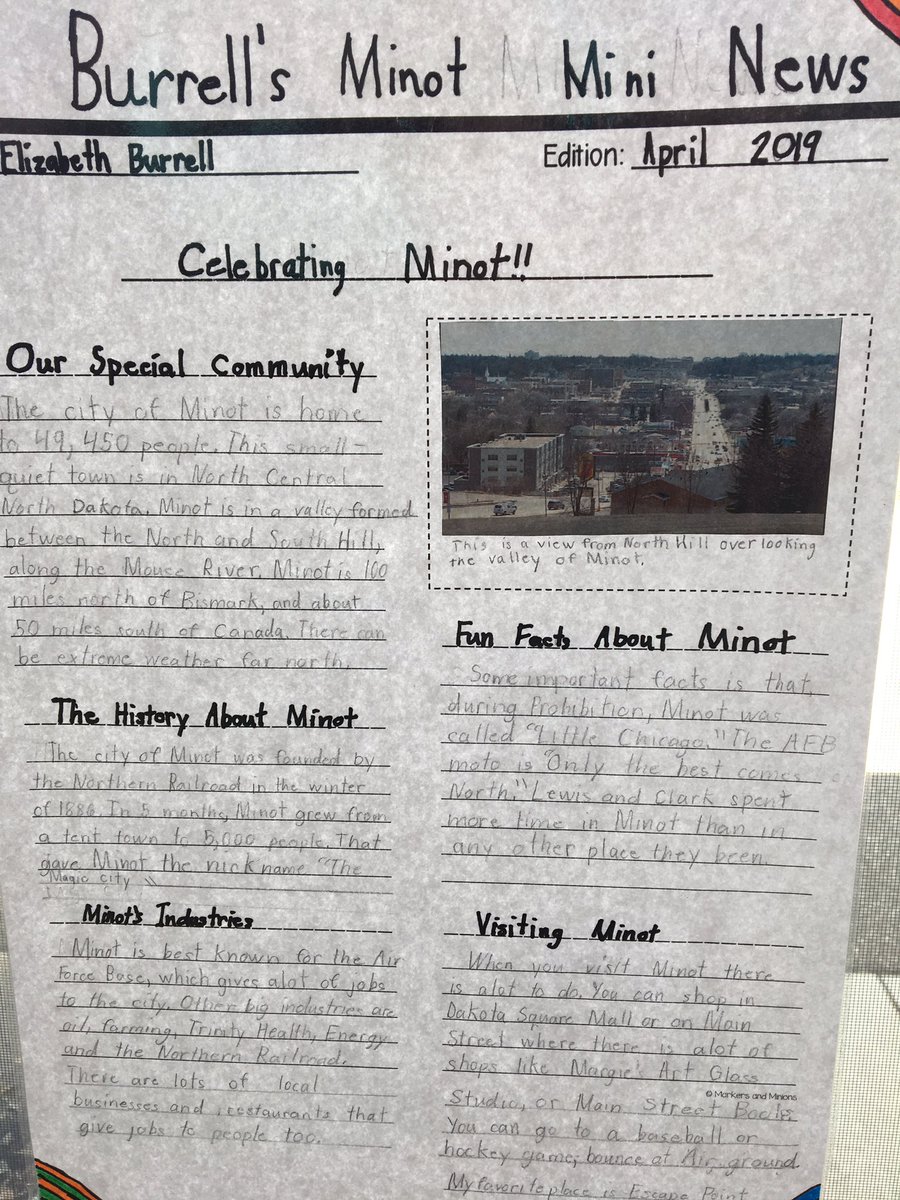 Burrell's Minot Mini News
Elizabeth Burrell
Edition: April 2019
Celebrating Minot!!
Our Special Community
The city of Minot is home
to 49,450 people. This small-
quiet town is in North Central
North Dakota. Minot is in a valley formed
between the North and South Hill,
along the Mouse River. Minot is 100
miles north of Bismark, and about
50 miles south of Canada. There can
be extreme weather far north.
The History About Minot
The city of Minot was founded by
the Northern Railroad in the winter
of 1886. In 5 months, Minot grew from
a tent town to 5,000 people. That
gave Minot the nickname "The
Magic City"
Minot's Industries
Minot is best known for the Air
Force Base, which gives alot of jobs
to the city. Other big industries are
oil, farming, Trinity Health, Energy
and the Northern Railroad.
There are lots of local
businesses and restaurants that
give jobs to people too.
This is a view from North Hill over looking
the valley of Minot.
Fun Facts About Minot
Some important facts is that,
during Prohibition, Minot was
called "Little Chicago." The AFB
moto is "Only the best comes
North." Lewis and Clark spent
more time in Minot than in
any other place they been.
Visiting Minot
When you visit Minot there
is alot to do. You can shop in
Dakota Square Mall or on Main
Street where there is alot of
shops like Margie's Art Glass
© Markers and Minions
Studio, or Main Street Books.
You can go to a baseball or
hockey game, bounce at Air ground.
My favorite place is Escape Point